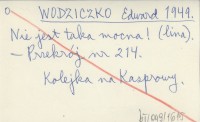 WODZICZKO Edward 1949.
Nie jest taka mocna! (lina).
- Przekrój nr 214.
Kolejka na Kasprowy.